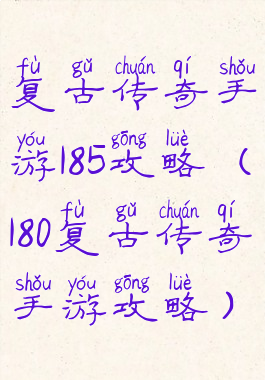 fù gǔ chuán qí shǒu
复古传奇手
yóu gōng lüè
游185攻略（
fù gǔ chuán qí
180复古传奇
shǒu yóu gōng lüè
手游攻略）